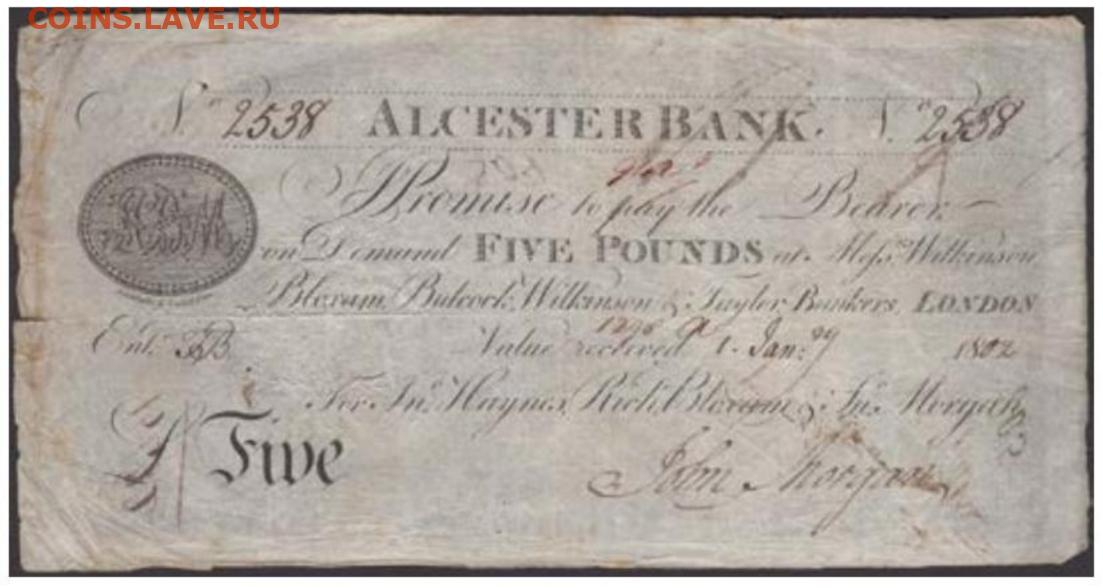 COINS.LAVE.RU
No. 2538 ALCESTER BANK. No. 2538
I Promise to pay the Bearer
on Demand FIVE POUNDS at Messrs. Wilkinson
Bloxam, Bulcock, Wilkinson & Taylor Bankers, LONDON
Ent. Value received 1. Jany. 1802
For Jno. Haynes, Richd. Bloxam & Jno. Morgan
£ Five
John Morgan